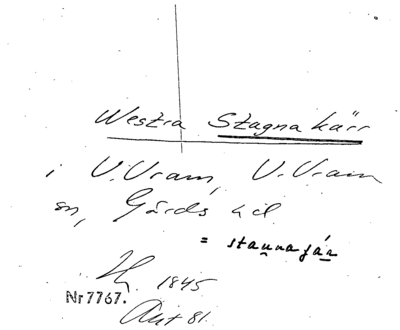 Westra Stagnakärr
i V. Vram, V. Vram
sn, Gärds hd.
= stau̲nafár̲
1845
Nr 7767.
Akt 81.